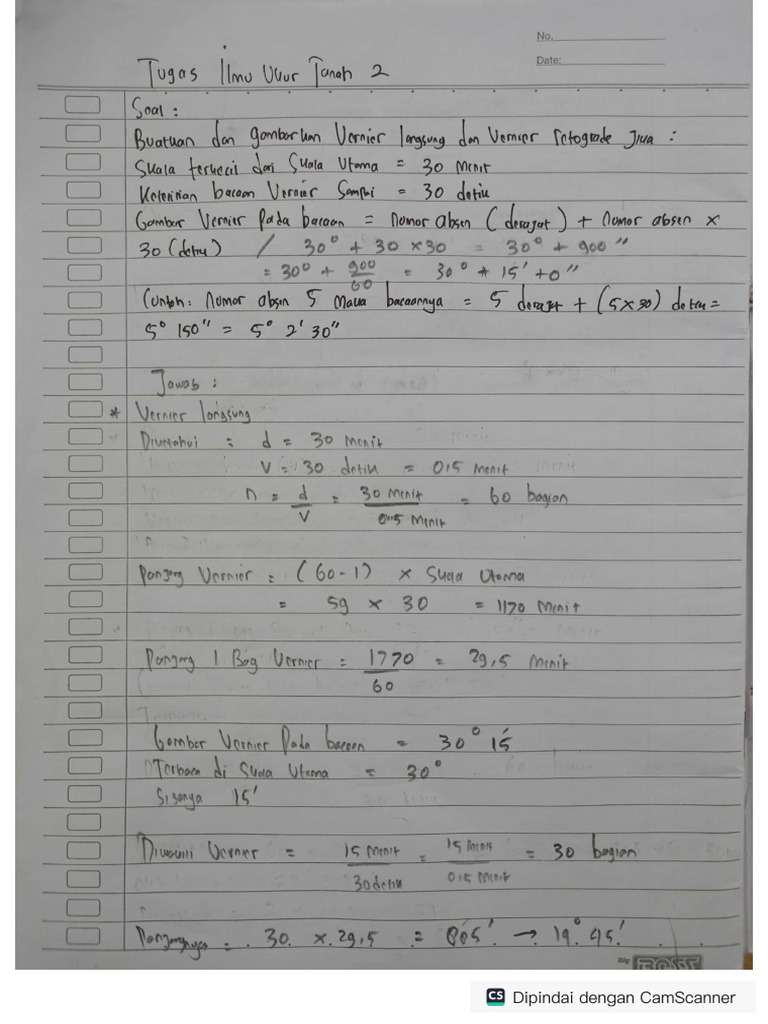 No.
Date:
Tugas Ilmu Ukur Tanah 2
Soal :
Buatkan dan gambarkan Vernier langsung dan Vernier retograde jika :
Skala terkecil dari Skala Utama = 30 Menit
Ketelitian bacaan Vernier Sampai = 30 detik
Gambar Vernier Pada bacaan = Nomor absen (derajat) + Nomor absen x
30 (detik) / 30° + 30 x 30 = 30° + 900"
= 30° + 900/60 = 30° + 15' + 0"
Contoh : Nomor absen 5 Maka bacaannya = 5 derajat + (5x30) detik =
5° 150" = 5° 2' 30"
Jawab :
* Vernier langsung
Diketahui : d = 30 Menit
V = 30 detik = 0,5 Menit
n = d/V = 30 Menit/0,5 Menit = 60 bagian
Panjang Vernier = (60-1) x Skala Utama
= 59 x 30 = 1770 Menit
Panjang 1 Bag Vernier = 1770/60 = 29,5 Menit
Gambar Vernier Pada bacaan = 30° 15'
Terbaca di Skala Utama = 30°
Sisanya 15'
Diwakili Vernier = 15 Menit/30 detik = 15 Menit/0,5 Menit = 30 bagian
Panjangnya = 30 x 29,5 = 885' → 14° 45'
CS Dipindai dengan CamScanner